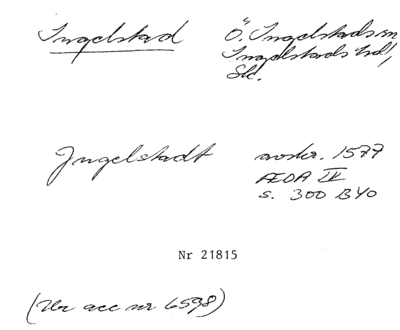 Ingelstad Ö. Ingelstads sn
Ingelstads hd,
Sk.
Jngelstadt avskr. 1577
ÆDA IV
s. 300 BYO
Nr 21815
(Ur acc nr 6598)